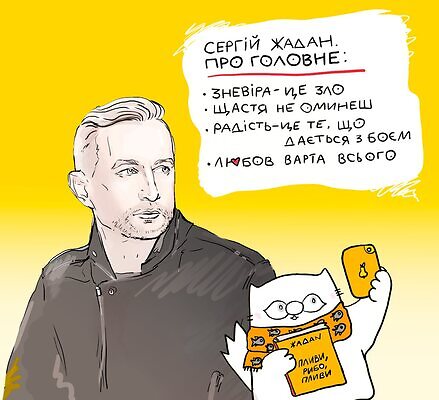 СЕРГІЙ ЖАДАН.
ПРО ГОЛОВНЕ:
• ЗНЕВІРА - ЦЕ ЗЛО
• ЩАСТЯ НЕ ОМИНЕШ
• РАДІСТЬ - ЦЕ ТЕ, ЩО
ДАЄТЬСЯ З БОЄМ
• ЛЮБОВ ВАРТА ВСЬОГО
ЖАДАН
ПЛИВИ,
РИБО,
ПЛИВИ